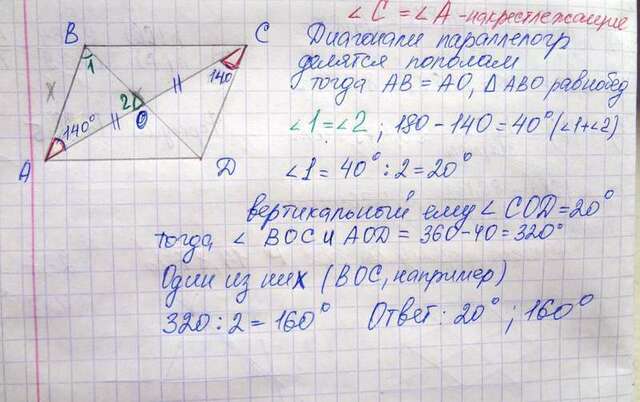 ∠C = ∠A - накрестлежащие
B
C
Диагонали параллелогр
делятся пополам
тогда AB = AO, ΔABO равнобед
1
140
2
140°
O
A
D
∠1 = ∠2 ; 180 - 140 = 40° (∠1+∠2)
∠1 = 40° : 2 = 20°
вертикальный ему ∠ COD = 20°
тогда, ∠ BOC и AOD = 360 - 40 = 320°
Один из них (BOC, например)
320 : 2 = 160° Ответ: 20° ; 160°